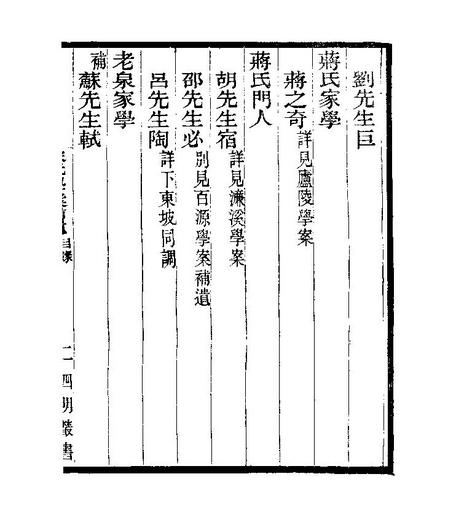 劉先生巨
蔣氏家學
蔣之奇詳見廬陵學案
蔣氏門人
胡先生宿詳見濂溪學案
邵先生必別見百源學案補遺
呂先生陶詳下東坡同調
老泉家學
補蘇先生軾
四明叢書